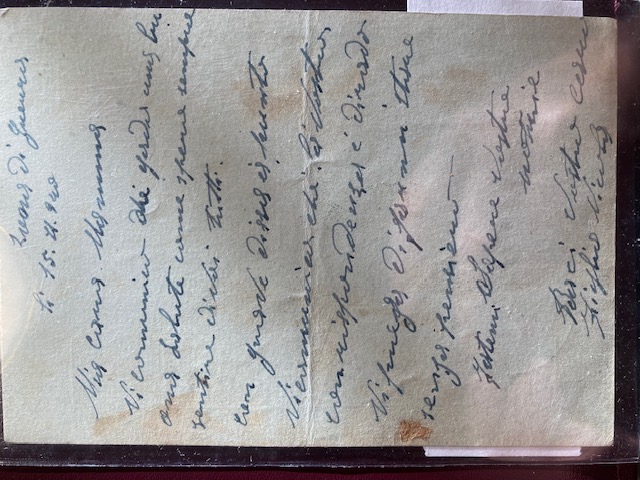 Zona di Guerra
li 15. 11. 940
Mia cara Mamma
Vi comunico che godo una bu
ona Salute come spero sempre
sentire di Voi tutti.
con grave
Vi comunico che la Vostra
corrispondenza è dirado
Vi prego di farmi stare
senza pensiero
Fatemi Sapere Vostre
notizie
Baci Vostro caro
Figlio Nicola